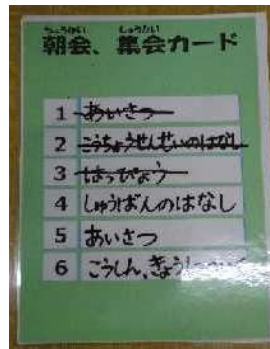 ちょうかい しゅうかい
朝会、集会カード
1 あいさつ
2 こうちょうせんせいのはなし
3 はっぴょう
4 しゅうばんのはなし
5 あいさつ
6 こうしん、きょうし